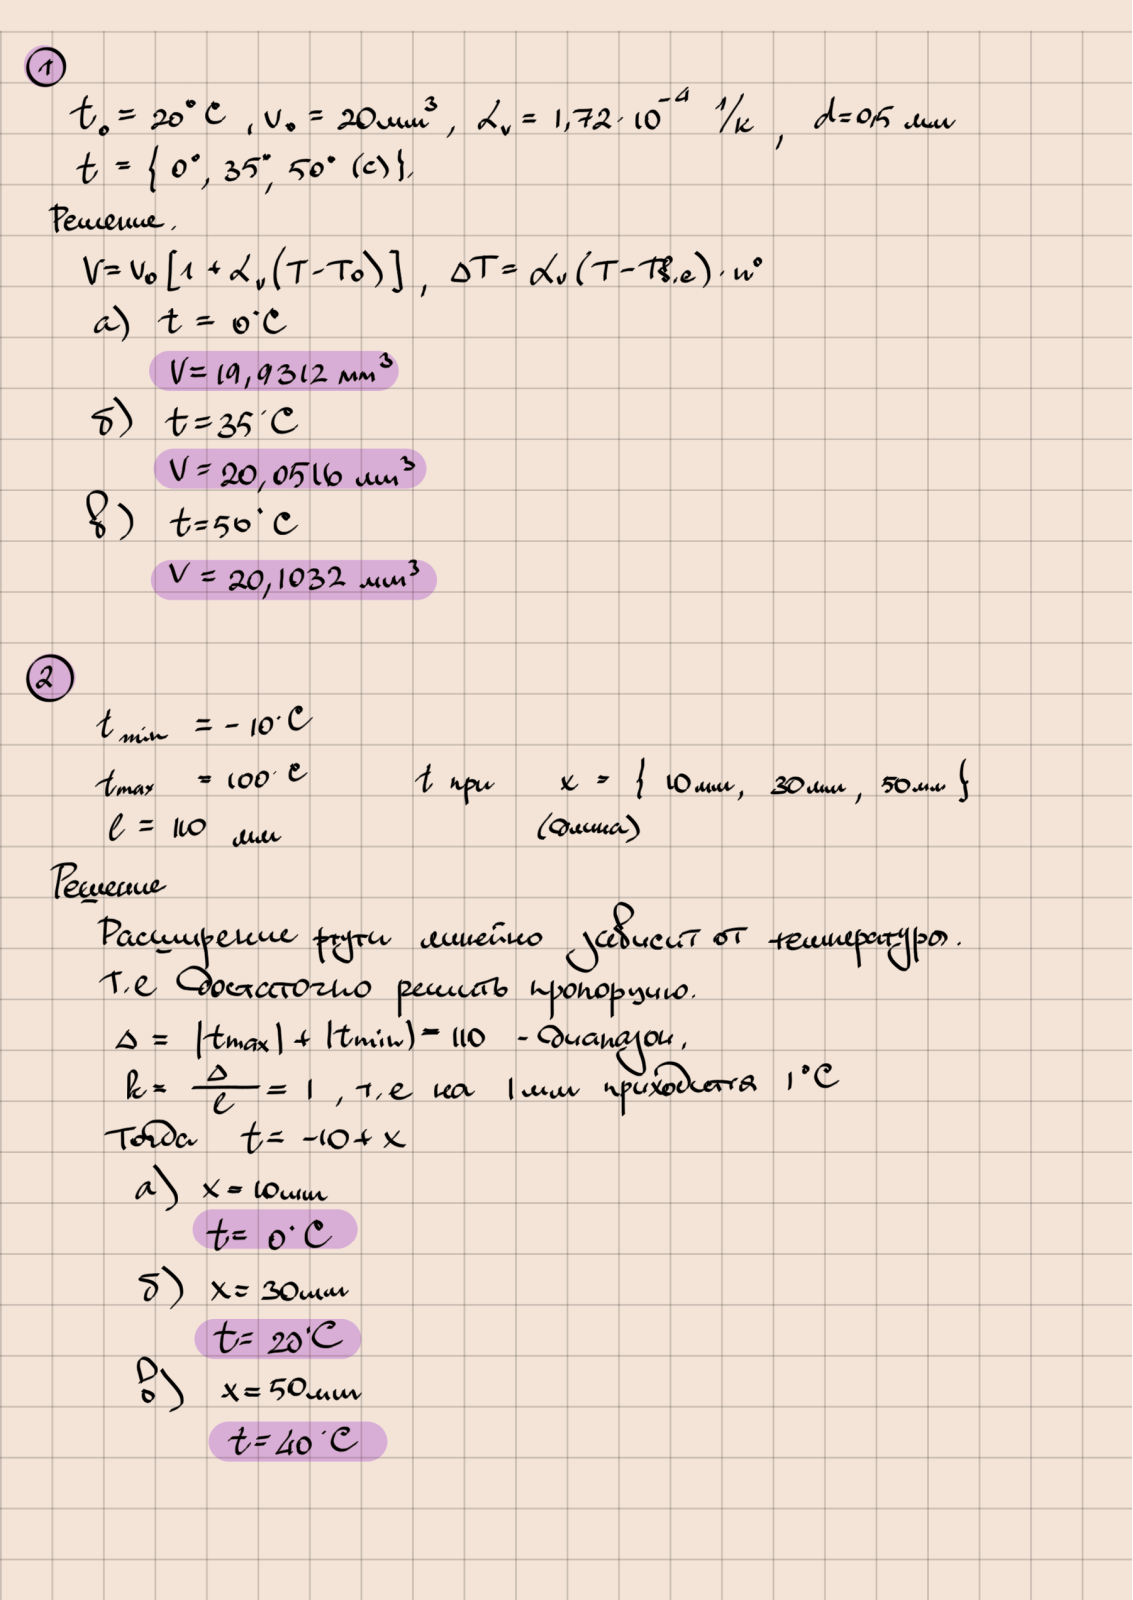 1
t₀ = 20°C, V₀ = 20мм³, αᵥ = 1,72·10⁻⁴ 1/K, d=0,5 мм
t = { 0°, 35°, 50° (C)}.
Решение.
V=V₀[1 + αᵥ(T-T₀)], ΔT = αᵥ(T-Tв.е)·n°
а) t = 0°C
V=19,9312 мм³
б) t=35°C
V = 20,0516 мм³
в) t=50°C
V = 20,1032 мм³
2
t min = -10°C
t max = 100°C t при x = { 10мм, 30мм, 50мм }
l = 110 мм (длина)
Решение
Расширение ртути линейно зависит от температуры.
Т.е достаточно решить пропорцию.
Δ = |tmax| + |tmin| = 110 - диапазон.
k = Δ/l = 1, т.е на 1мм приходится 1°C
Тогда t = -10 + x
а) x = 10мм
t = 0°C
б) x = 30мм
t = 20°C
в) x = 50мм
t = 40°C